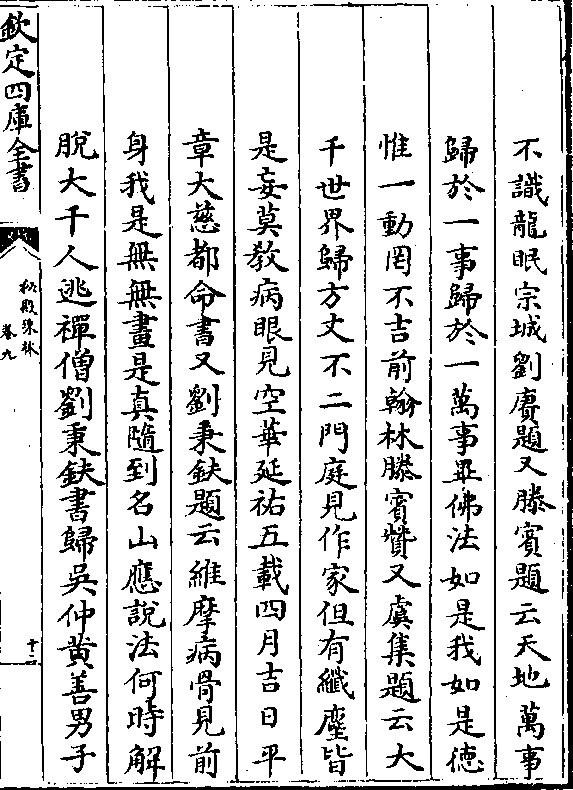 不識龍眠宗城劉賡題又滕賓題云天地萬事
歸於一事歸於一萬事畢佛法如是我如是德
惟一動罔不吉前翰林滕賓贊又虞集題云大
千世界歸方丈不二門庭見作家但有纖塵皆
是妄莫教病眼見空華延祐五載四月吉日平
章大慈都命書又劉秉鈇題云維摩病骨見前
身我是無無畫是真隨到名山應說法何時解
脫大千人逃禪僧劉秉鈇書歸吳仲黄善男子
欽定四庫全書
秘殿珠林
卷九
十二